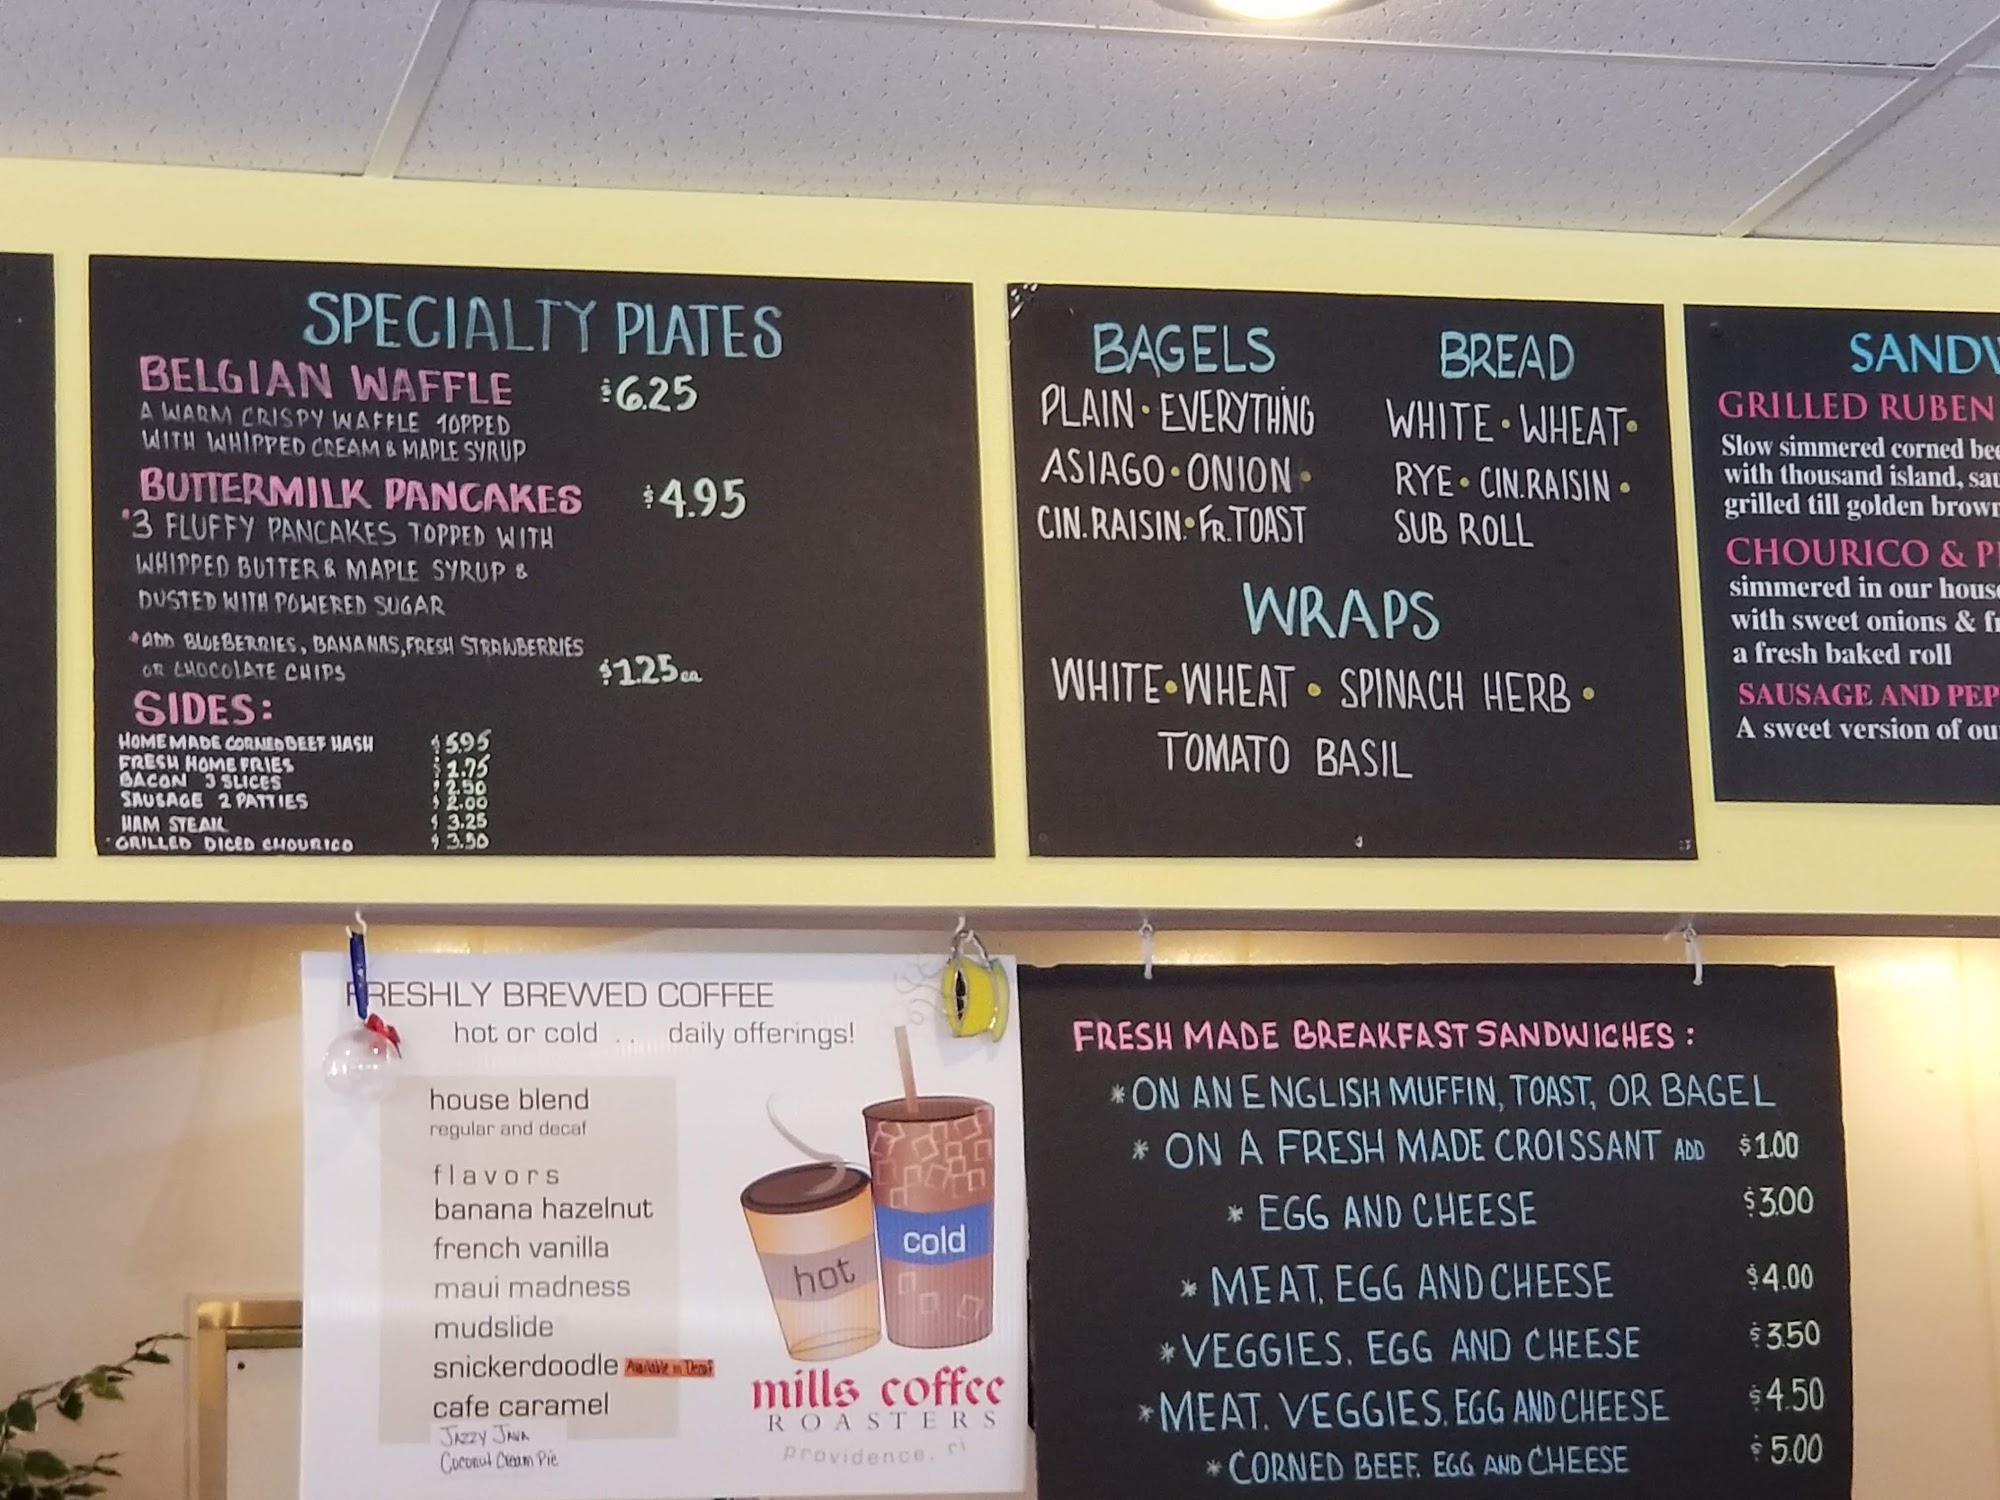 SPECIALTY PLATES
BELGIAN WAFFLE $6.25
A WARM CRISPY WAFFLE TOPPED
WITH WHIPPED CREAM & MAPLE SYRUP
BUTTERMILK PANCAKES $4.95
*3 FLUFFY PANCAKES TOPPED WITH
WHIPPED BUTTER & MAPLE SYRUP &
DUSTED WITH POWERED SUGAR
*ADD BLUEBERRIES, BANANAS, FRESH STRAWBERRIES
OR CHOCOLATE CHIPS $1.25 ea
SIDES:
HOMEMADE CORNED BEEF HASH $5.95
FRESH HOME FRIES $1.75
BACON 3 SLICES $2.50
SAUSAGE 2 PATTIES $2.00
HAM STEAK $3.25
GRILLED DICED CHOURICO $3.50
BAGELS
PLAIN • EVERYTHING
ASIAGO • ONION •
CIN. RAISIN • FR. TOAST
BREAD
WHITE • WHEAT •
RYE • CIN. RAISIN •
SUB ROLL
WRAPS
WHITE • WHEAT • SPINACH HERB •
TOMATO BASIL
SANDW
GRILLED RUBEN
Slow simmered corned bee
with thousand island, sau
grilled till golden brown
CHOURICO & P
simmered in our house
with sweet onions & fr
a fresh baked roll
SAUSAGE AND PEP
A sweet version of ou
FRESHLY BREWED COFFEE
hot or cold . . daily offerings!
house blend
regular and decaf
flavors
banana hazelnut
french vanilla
maui madness
mudslide
snickerdoodle Available in Decaf
cafe caramel
Jazzy Java
Coconut Cream Pie
hot
cold
mills coffee
ROASTERS
providence, ri
FRESH MADE BREAKFAST SANDWICHES:
* ON AN ENGLISH MUFFIN, TOAST, OR BAGEL
* ON A FRESH MADE CROISSANT ADD $1.00
* EGG AND CHEESE $3.00
* MEAT, EGG AND CHEESE $4.00
* VEGGIES, EGG AND CHEESE $3.50
* MEAT, VEGGIES, EGG AND CHEESE $4.50
* CORNED BEEF, EGG AND CHEESE $5.00